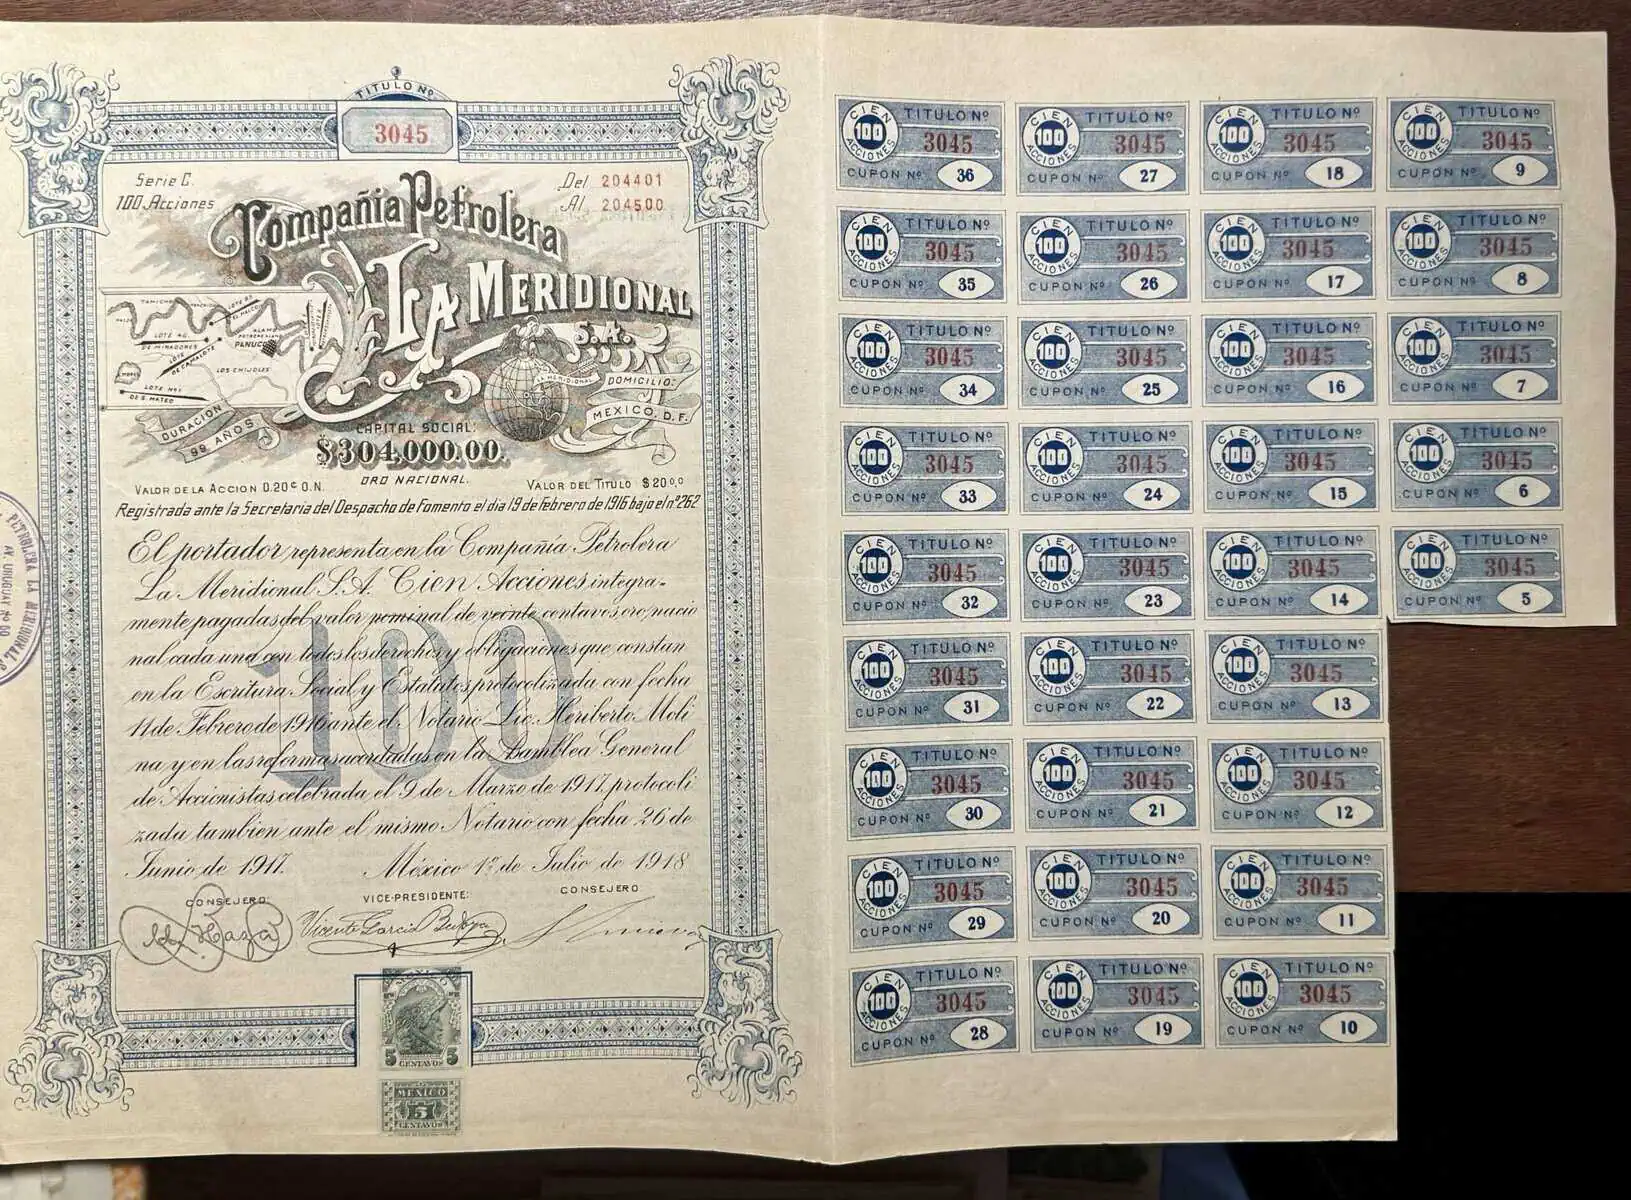 TITULO Nº
3045
Serie C.
100 Acciones
Del 204401
Al 204500
Compañia Petrolera
LA MERIDIONAL
S.A.
TAMICHO
LOTE 40
DE MIRADORES
LOTE
DE CAMALOTE
PANUCO
LOS CHIJOLES
LOTE Nº1
DE S. MATEO
LA MERIDIONAL
DURACION
99 AÑOS.
DOMICILIO:
MEXICO, D.F.
CAPITAL SOCIAL:
$304,000.00.
ORO NACIONAL.
VALOR DE LA ACCION 0.20¢ O.N.
VALOR DEL TITULO $20.00
Registrada ante la Secretaria del Despacho de Fomento el dia 19 de Febrero de 1916 bajo el nº 262
El portador representa en la Compañia Petrolera
La Meridional S.A. Cien Acciones integra-
mente pagadas del valor nominal de veinte centavos oro nacio
nal cada una con todos los derechos y obligaciones que constan
en la Escritura Social y Estatutos protocolizada con fecha
11 de Febrero de 1916 ante el Notario Lic. Heriberto Moli
na y en las reformas acordadas en la Asamblea General
de Accionistas celebrada el 9 de Marzo de 1917, protocoli
zada tambien ante el mismo Notario con fecha 26 de
Junio de 1917. México 1º de Julio de 1918
100
CONSEJERO:
VICE-PRESIDENTE:
CONSEJERO
Vicente Garcia
MEXICO
5 5
CENTAVOS
MEXICO
5
CENTAVOS
PETROLERA LA MERIDIONAL S
AV. URUGUAY Nº
CIEN 100 ACCIONES TITULO Nº 3045 CUPON Nº 36
CIEN 100 ACCIONES TITULO Nº 3045 CUPON Nº 27
CIEN 100 ACCIONES TITULO Nº 3045 CUPON Nº 18
CIEN 100 ACCIONES TITULO Nº 3045 CUPON Nº 9
CIEN 100 ACCIONES TITULO Nº 3045 CUPON Nº 35
CIEN 100 ACCIONES TITULO Nº 3045 CUPON Nº 26
CIEN 100 ACCIONES TITULO Nº 3045 CUPON Nº 17
CIEN 100 ACCIONES TITULO Nº 3045 CUPON Nº 8
CIEN 100 ACCIONES TITULO Nº 3045 CUPON Nº 34
CIEN 100 ACCIONES TITULO Nº 3045 CUPON Nº 25
CIEN 100 ACCIONES TITULO Nº 3045 CUPON Nº 16
CIEN 100 ACCIONES TITULO Nº 3045 CUPON Nº 7
CIEN 100 ACCIONES TITULO Nº 3045 CUPON Nº 33
CIEN 100 ACCIONES TITULO Nº 3045 CUPON Nº 24
CIEN 100 ACCIONES TITULO Nº 3045 CUPON Nº 15
CIEN 100 ACCIONES TITULO Nº 3045 CUPON Nº 6
CIEN 100 ACCIONES TITULO Nº 3045 CUPON Nº 32
CIEN 100 ACCIONES TITULO Nº 3045 CUPON Nº 23
CIEN 100 ACCIONES TITULO Nº 3045 CUPON Nº 14
CIEN 100 ACCIONES TITULO Nº 3045 CUPON Nº 5
CIEN 100 ACCIONES TITULO Nº 3045 CUPON Nº 31
CIEN 100 ACCIONES TITULO Nº 3045 CUPON Nº 22
CIEN 100 ACCIONES TITULO Nº 3045 CUPON Nº 13
CIEN 100 ACCIONES TITULO Nº 3045 CUPON Nº 30
CIEN 100 ACCIONES TITULO Nº 3045 CUPON Nº 21
CIEN 100 ACCIONES TITULO Nº 3045 CUPON Nº 12
CIEN 100 ACCIONES TITULO Nº 3045 CUPON Nº 29
CIEN 100 ACCIONES TITULO Nº 3045 CUPON Nº 20
CIEN 100 ACCIONES TITULO Nº 3045 CUPON Nº 11
CIEN 100 ACCIONES TITULO Nº 3045 CUPON Nº 28
CIEN 100 ACCIONES TITULO Nº 3045 CUPON Nº 19
CIEN 100 ACCIONES TITULO Nº 3045 CUPON Nº 10